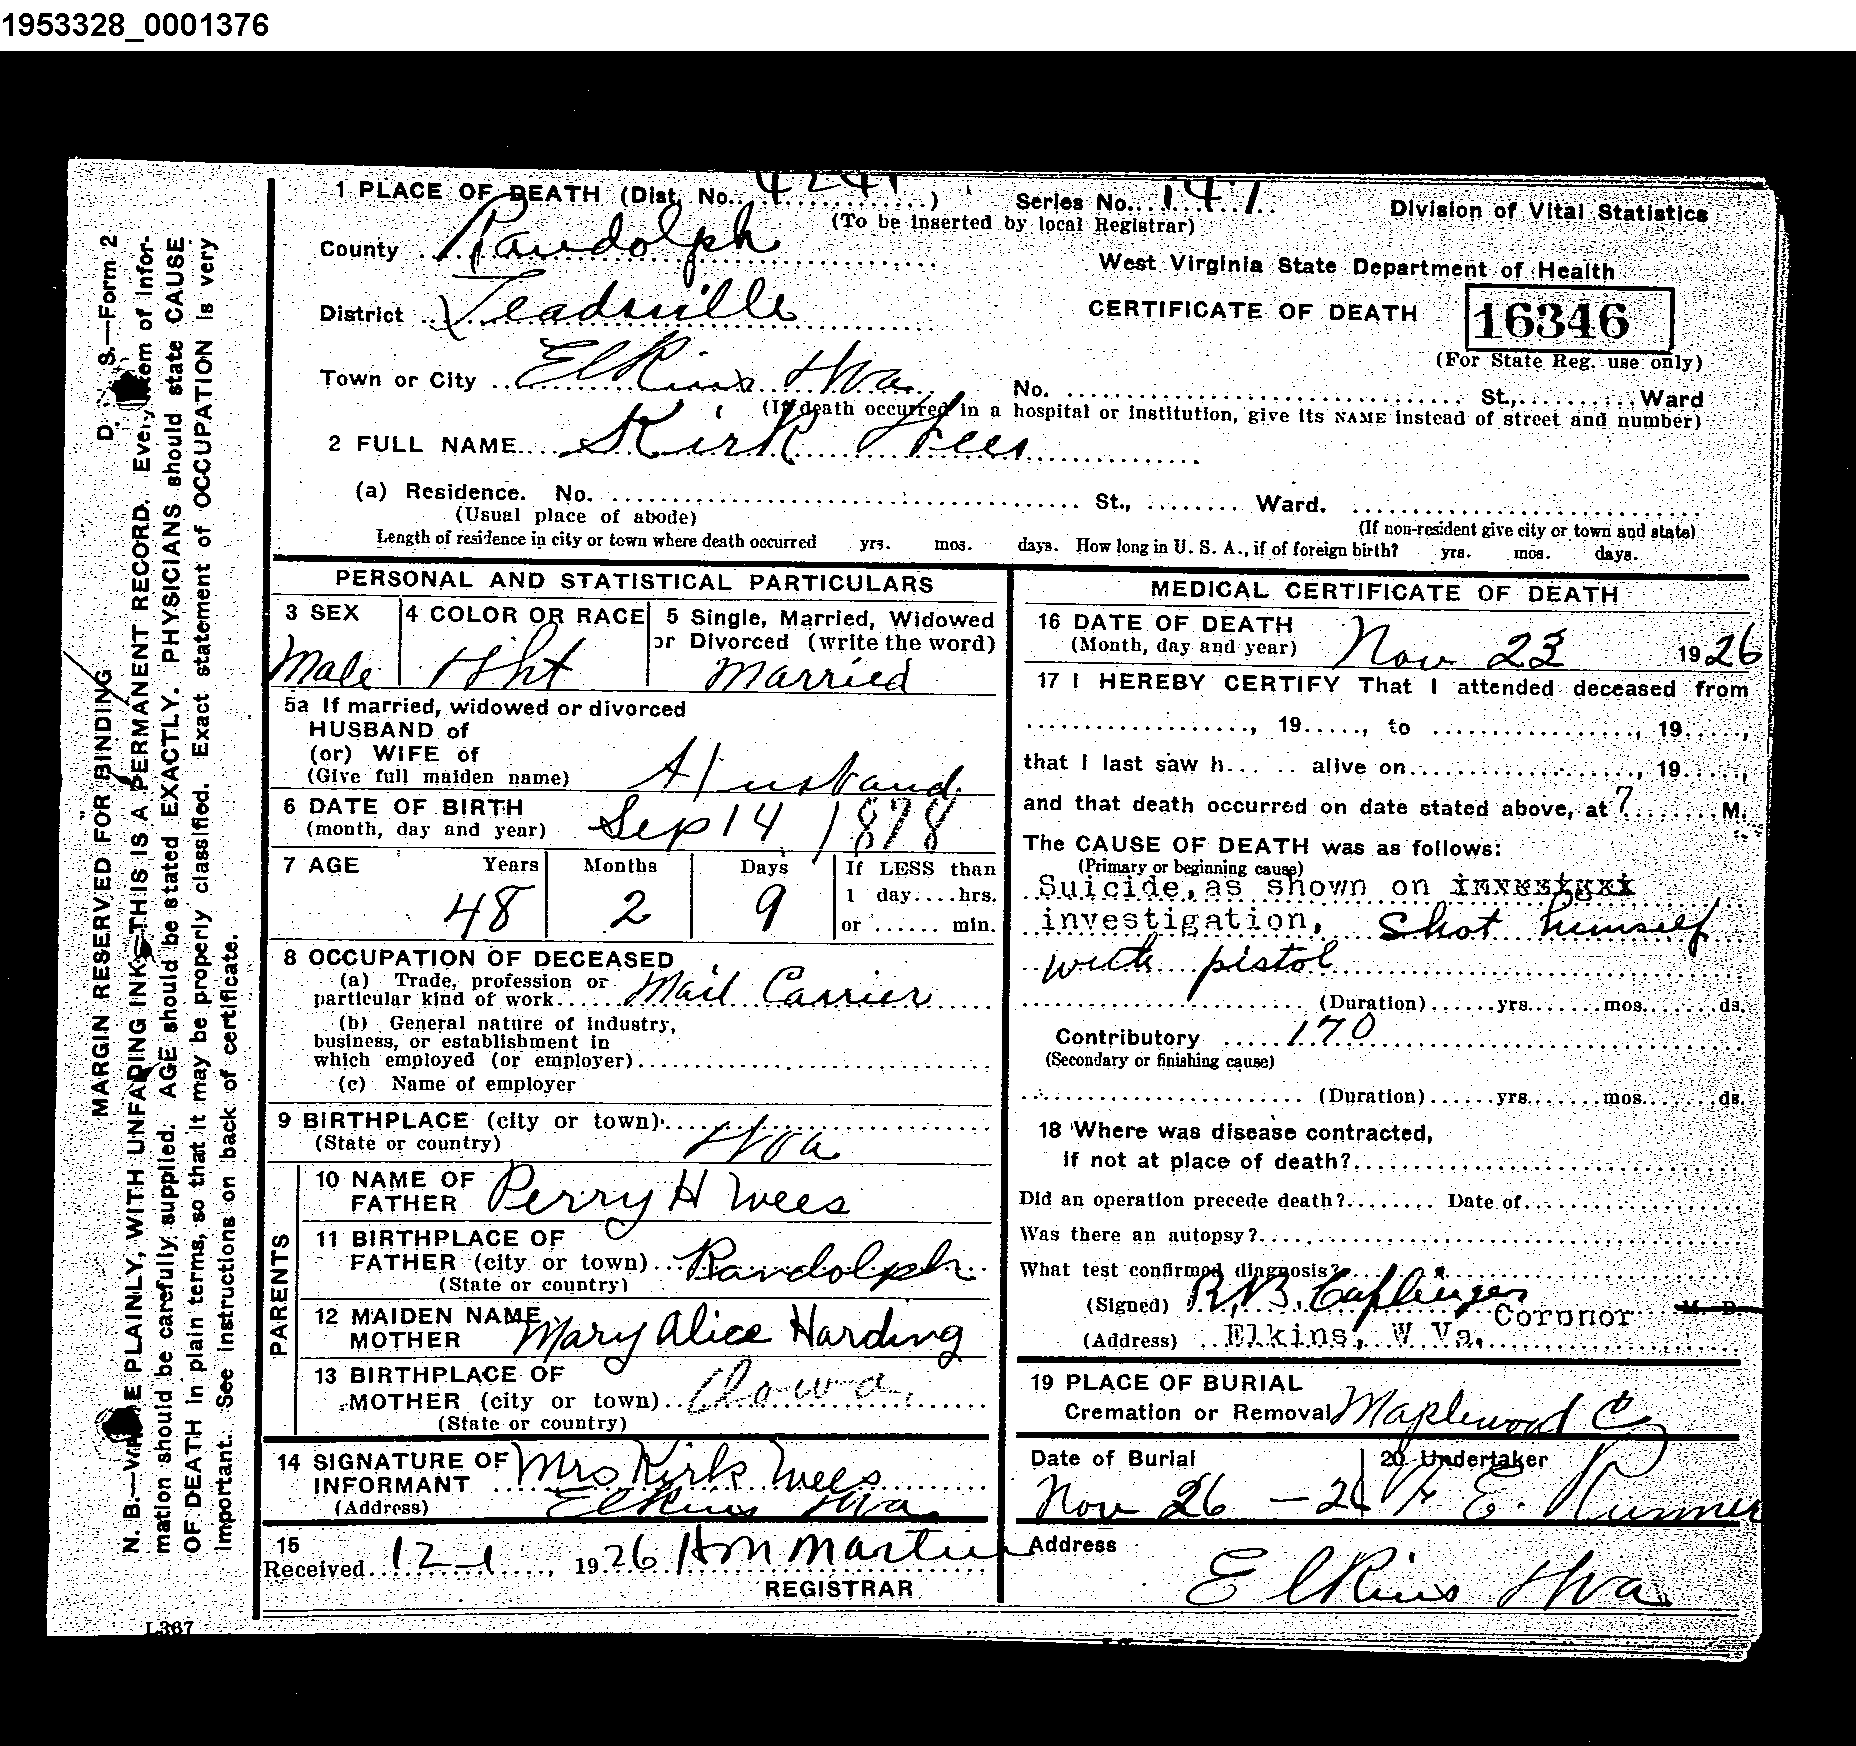 1953328_0001376
1 PLACE OF DEATH (Dist. No. 4241) Series No. 147
(To be inserted by local Registrar)
Division of Vital Statistics
County Randolph
West Virginia State Department of Health
District Leadsville
CERTIFICATE OF DEATH 16346
(For State Reg. use only)
Town or City Elkins Wva No. St., Ward
(If death occurred in a hospital or institution, give its NAME instead of street and number)
2 FULL NAME Kirk Wees
(a) Residence. No. St., Ward.
(Usual place of abode) (If non-resident give city or town and state)
Length of residence in city or town where death occurred yrs. mos. days. How long in U. S. A., if of foreign birth? yrs. mos. days.
PERSONAL AND STATISTICAL PARTICULARS
3 SEX Male
4 COLOR OR RACE Wht
5 Single, Married, Widowed
or Divorced (write the word)
Married
5a If married, widowed or divorced
HUSBAND of
(or) WIFE of
(Give full maiden name) Husband
6 DATE OF BIRTH
(month, day and year) Sep 14 1878
7 AGE Years Months Days If LESS than
1 day....hrs.
or ...... min.
48 2 9
8 OCCUPATION OF DECEASED
(a) Trade, profession or
particular kind of work Mail Carrier
(b) General nature of industry,
business, or establishment in
which employed (or employer)
(c) Name of employer
9 BIRTHPLACE (city or town)
(State or country) Wva
PARENTS
10 NAME OF
FATHER Perry H Wees
11 BIRTHPLACE OF
FATHER (city or town) Randolph
(State or country)
12 MAIDEN NAME
MOTHER Mary Alice Harding
13 BIRTHPLACE OF
MOTHER (city or town) Iowa
(State or country)
14 SIGNATURE OF
INFORMANT Mrs Kirk Wees
(Address) Elkins Wva
15
Received 12-1, 1926 H M Martin
REGISTRAR
MEDICAL CERTIFICATE OF DEATH
16 DATE OF DEATH
(Month, day and year) Nov 23 1926
17 I HEREBY CERTIFY That I attended deceased from
, 19....., to , 19.....,
that I last saw h... .. alive on , 19.....,
and that death occurred on date stated above, at 7 M.
The CAUSE OF DEATH was as follows:
(Primary or beginning cause)
Suicide, as shown on
investigation, Shot himself
with pistol
(Duration)......yrs.......mos.......ds.
Contributory 170
(Secondary or finishing cause)
(Duration)......yrs.......mos.......ds.
18 Where was disease contracted,
if not at place of death?
Did an operation precede death? Date of
Was there an autopsy?
What test confirmed diagnosis?
(Signed) R.B. Caplinger Coronor M. D.
(Address) Elkins, W Va.
19 PLACE OF BURIAL
Cremation or Removal Maplewood C
Date of Burial
Nov 26 - 26
20 Undertaker
F E. Runner
Address
Elkins Wva
D. S.—Form 2
MARGIN RESERVED FOR BINDING
N. B.—WRITE PLAINLY, WITH UNFADING INK—THIS IS A PERMANENT RECORD. Every item of infor-
mation should be carefully supplied. AGE should be stated EXACTLY. PHYSICIANS should state CAUSE
OF DEATH in plain terms, so that it may be properly classified. Exact statement of OCCUPATION is very
important. See instructions on back of certificate.
L367